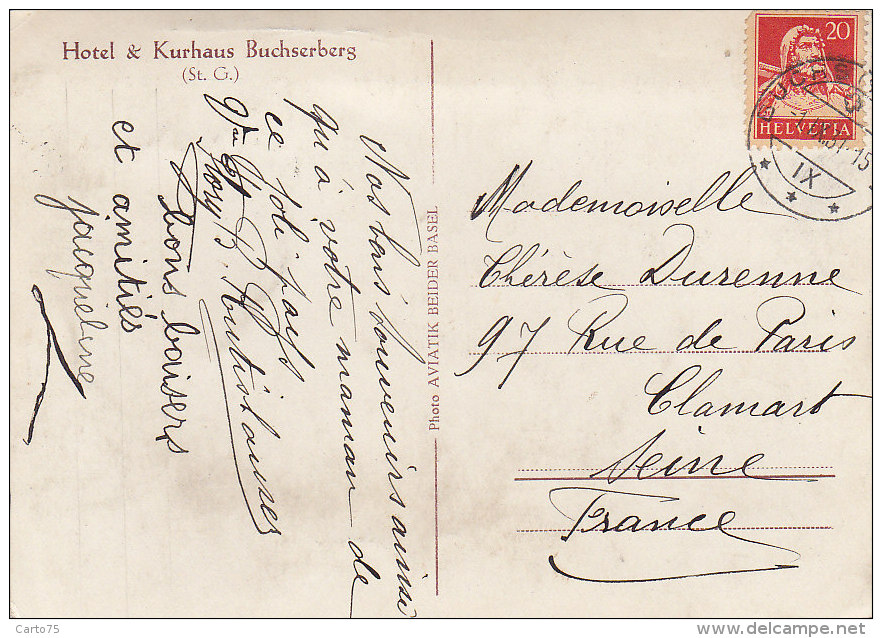 Hotel & Kurhaus Buchserberg
(St. G.)
Nos bons souvenirs ainsi
qu'à votre maman de
ce joli pays
bons baisers
et amitiés
jacqueline
Photo AVIATIK BEIDER BASEL
20
HELVETIA
IX
Mademoiselle
Thérèse Durenne
97 Rue de Paris
Clamart
Seine
France
Carto75
delcampe.net